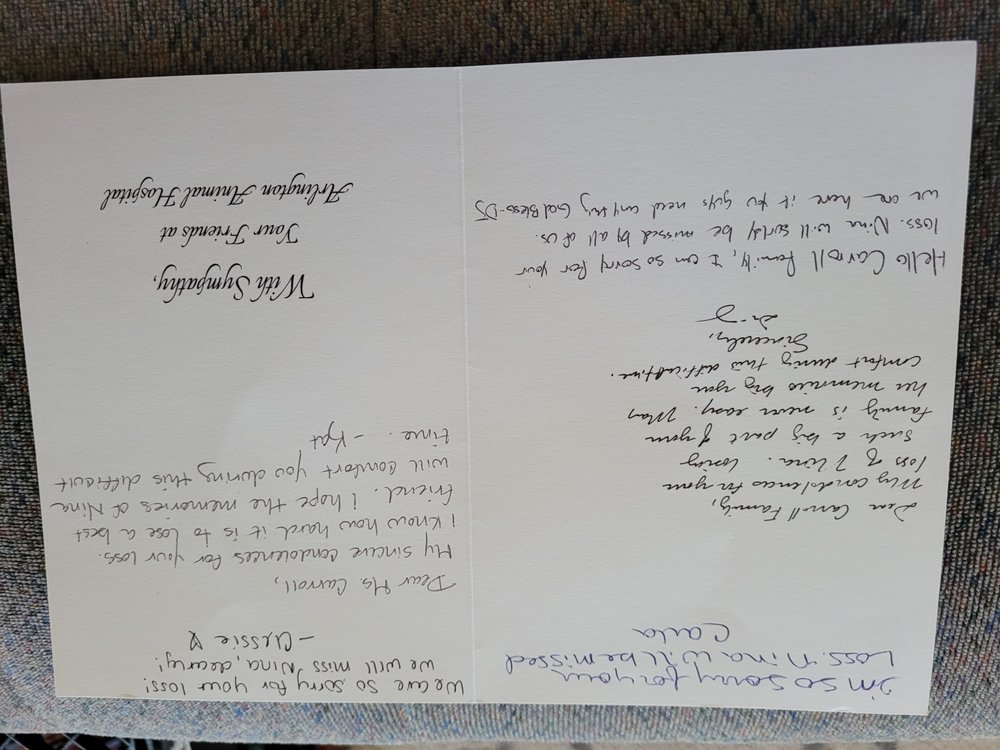 I'm so sorry for your
Loss. Nina will be missed
Carla
Dear Carroll Family,
My condolences for your
loss of Nina. Losing
such a big part of your
family is never easy. May
her memories bring you
comfort during this difficult time.
Sincerely,
Hello Carroll Family, I am so sorry for your
loss. Nina will be missed by all of us.
We are here if you guys need anything God Bless-DJ
We are so sorry for your loss!
We will miss Nina, dearly!
- Clessie ♡
Dear Ms. Carroll,
My sincere condolences for your loss.
I know how hard it is to lose a best
friend. I hope the memories of Nina
will comfort you during this difficult
time. - Kat
With Sympathy,
Your Friends at
Arlington Animal Hospital